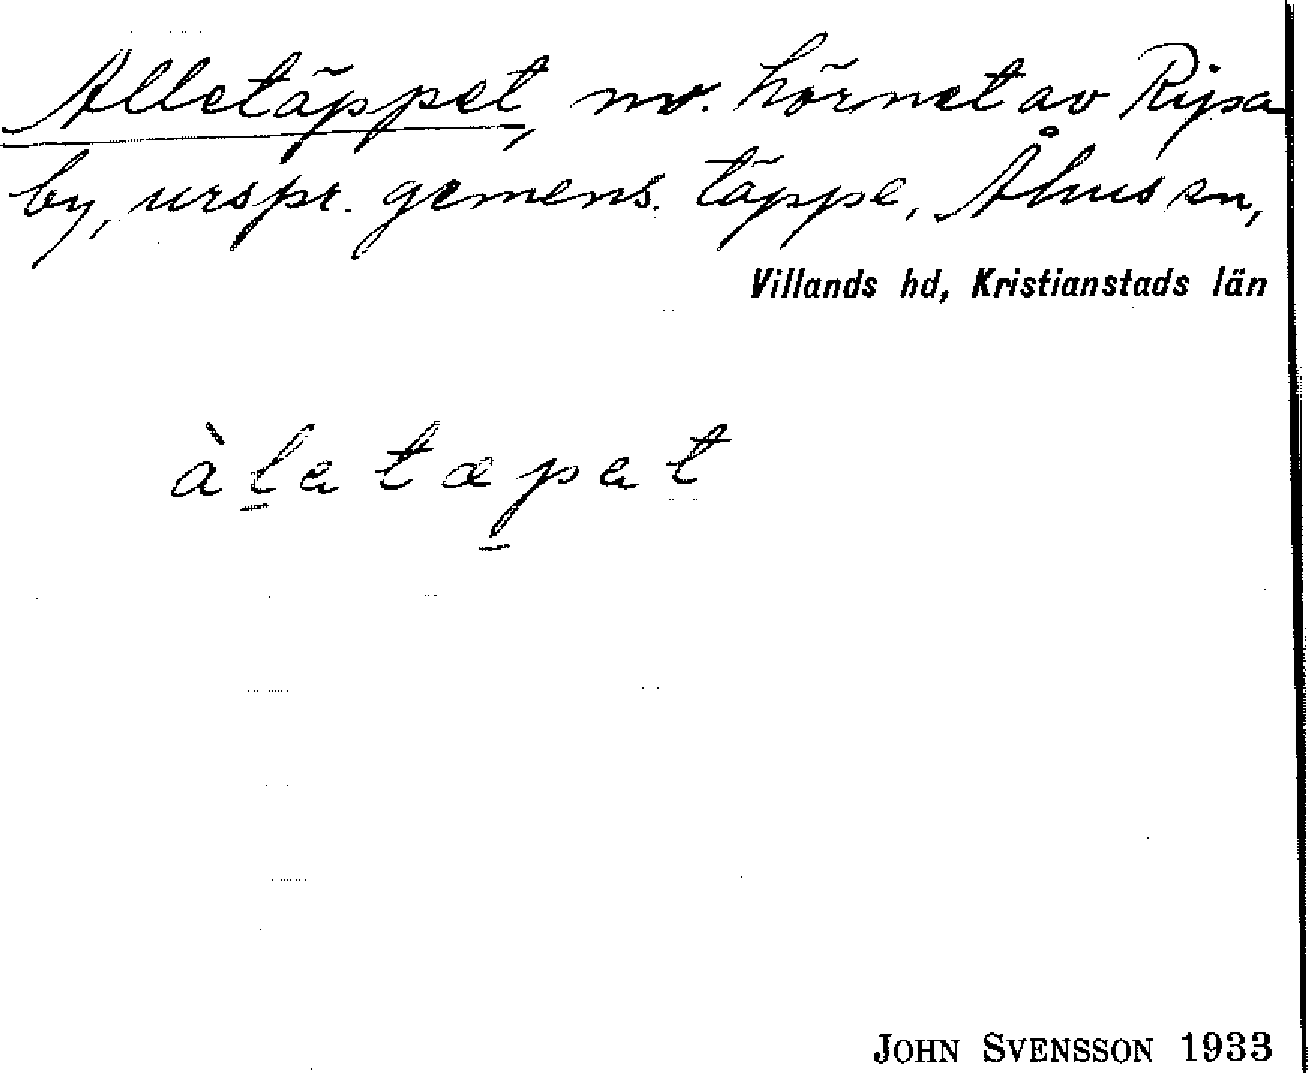 Alletäppet, nv. hörnet av Ripa
by, urspr. gemens. täppe, Åhus sn,
Villands hd, Kristianstads län
àl̲atæp̲at
JOHN SVENSSON 1933